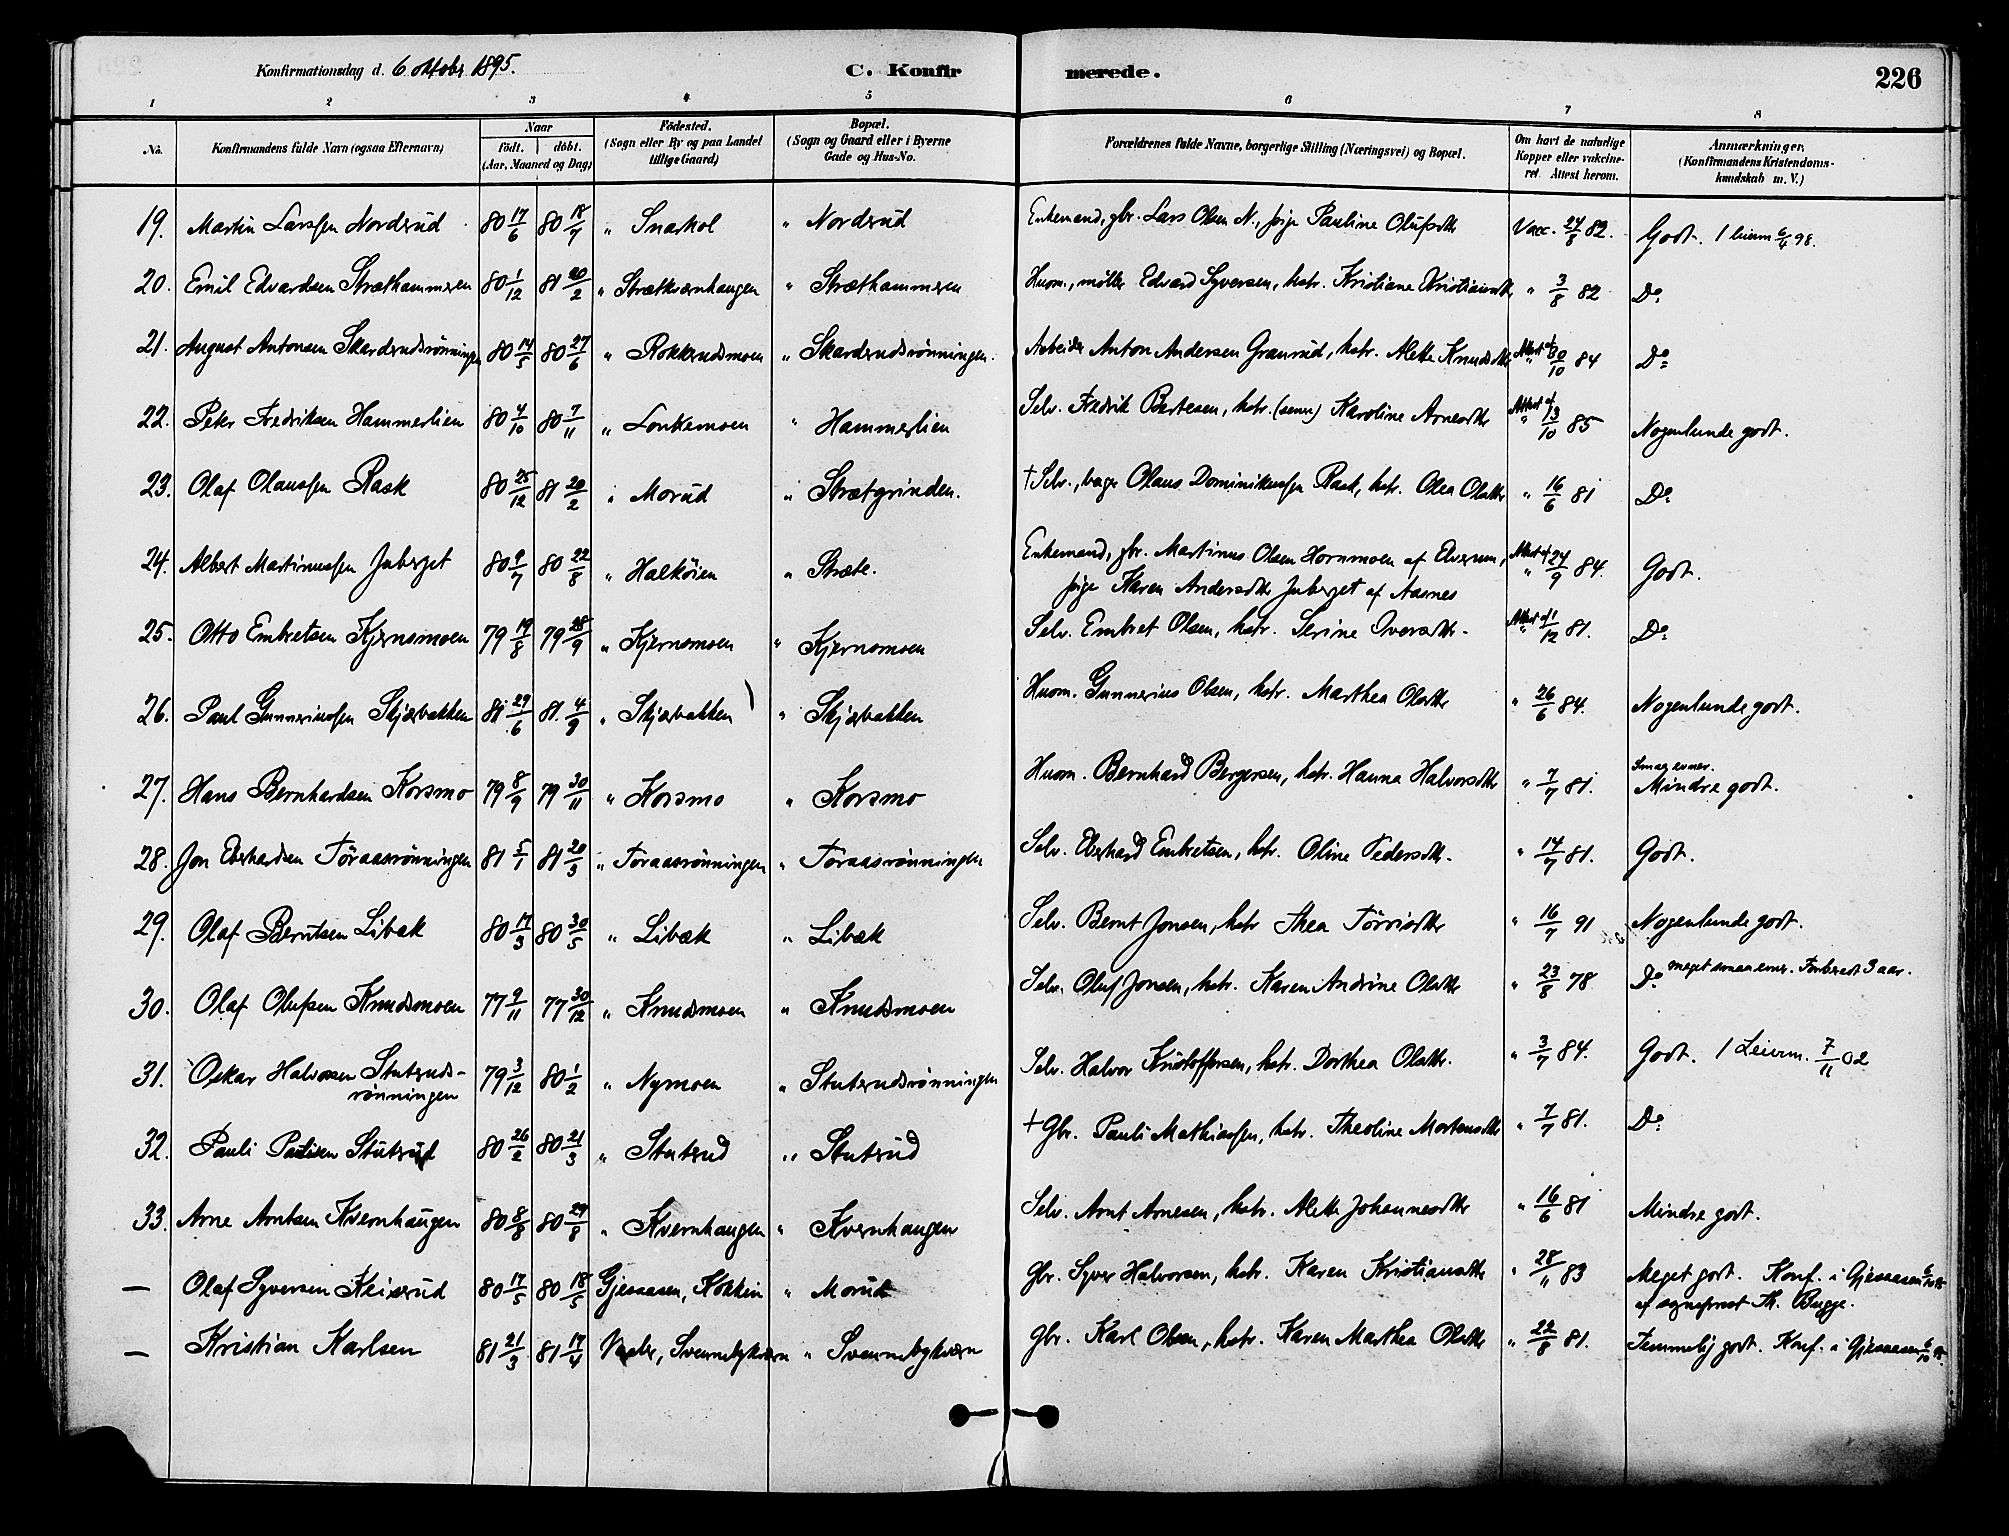 Konfirmationsdag d. 6 oktobr 1895.
C. Konfir merede.
226
1 2 3 4 5 6 7 8
No. Konfirmandens fulde Navn (ogsaa Efternavn) Naar födt. döbt. (Aar, Maaned og Dag) Födested. (Sogn eller By og paa Landet tillige Gaard) Bopæl. (Sogn og Gaard eller i Byerne Gade og Hus-No. Forældrenes fulde Navne, borgerlige Stilling (Næringsvei) og Bopæl. Om havt de naturlige Kopper eller vakcineret. Attest herom. Anmærkninger. (Konfirmandens Kristendomskundskab m. V.)
19. Martin Larssen Nordsrud 80 17/6 80 18/7 " Snarhol " Nordsrud Enkemand, gbr. Lars Olsen N., pige Pauline Olufsdtr Vacc. 27/8 82. Godt. 1 leierm 6/4 98.
20. Emil Edvardsen Stræthammeren 80 1/12 81 20/2 " Strætkvernhaugen " Stræthammeren Husm., møller Edvard Syversen, hstr. Kristiane Kristiansdtr " 3/8 82 Do
21. August Antonsen Skardsrudsrönningen 80 14/5 80 27/6 " Rokkerudsmoen " Skardsrudsrönningen. Arbeider Anton Andersen Granrud, hstr. Alette Knudsdtr Attest af 30/10 84 Do
22. Peter Fredriksen Hammerlien 80 4/10 80 7/11 " Lonkemoen " Hammerlien Selv. Fredrik Bertesen, hstr. Karoline Arnesdtr Attest af 13/10 85 Nogenlunde godt.
23. Olaf Olaussen Rask 80 25/12 81 20/2 " Morud " Strætgrinden. † Selv., bager Olaus Dominikussen Rask, hstr. Olea Olsdtr " 16/6 81 Do
24. Albert Martinussen Juberget 80 9/7 80 22/8 " Halköien " Stræte. Enkemand, gbr. Martinus Olsen Hornmoen af Elverum, Attest af 27/9 84. Godt.
pige Karen Andersdtr Juberget af Aasnes
25. Otto Embretsen Kjernsmoen 79 19/8 79 28/9 " Kjernsmoen " Kjernsmoen Selv. Embret Olsen, hstr. Serine Iversdtr. Attest af 1/12 81. Do
26. Paul Gunneriussen Skjærbakken 81 29/6 81. 4/9 " Skjærbakken " Skjærbakken Husm. Gunnerius Olsen, hstr. Marthea Olsdtr " 26/6 84. Nogenlunde godt.
27. Hans Bernhardsen Korsmo 79 8/9 79 30/11 " Korsmo " Korsmo Husm. Bernhard Bergersen, hstr. Hanna Halvorsdtr " 7/7 81. Smaa evner. Mindre godt.
28. Jon Eberhardsen Töraasrönningen 81 5/1 81 20/3 " Töraasrönningen " Töraasrönningen Selv. Eberhard Embretsen, hstr. Oline Pedersdtr. " 14/7 81. Godt.
29. Olaf Berntsen Libæk 80 17/3 80 30/5 " Libæk " Libæk Selv. Bernt Jonsen, hstr Thea Törrisdtr " 16/7 91 Nogenlunde godt.
30. Olaf Olufsen Knudsmoen 77 9/11 77 30/12 " Knudsmoen " Knudsmoen Selv. Oluf Jonsen, hstr. Karen Andrine Olsdtr " 23/8 78 Do meget smaa evner. Forberedt 3 aar.
31. Oskar Halvorsen Stutsruds-rönningen 79 3/12 80 1/2 " Nymoen " Stutsrudsrönningen Selv. Halvor Kristoffersen, hstr. Dorthea Olsdtr. " 3/7 84. Godt. 1 Leierm. 7/11 02
32. Pauli Paulisen Stutsrud 80 26/2 80 21/3 " Stutsrud " Stutsrud † Gbr. Pauli Mathiassen, hstr. Theoline Mortensdtr " 7/7 81. Do
33. Arne Arntsen Kvernhaugen 80 8/8 80 29/8 " Kvernhaugen " Kvernhaugen Selv. Arnt Arnesen, hstr. Alette Johannesdtr " 16/6 81 Mindre godt.
— Olaf Syversen Keiserud 80 17/5 80 18/5 Gjesaasen, Kokkin " Morud Gbr. Syver Halvorsen, hstr. Karen Kristiansdtr " 28/11 83 Meget godt. Konf. i Gjesaasen 6/10 95
af sogneprest Th. Bugge.
— Kristian Karlsen 81 21/3 81 17/4 Vaaler, Svennebykvern " Svennebykvern Gbr. Karl Olsen, hstr. Karen Marthea Olsdtr " 22/8 81. Temmelig godt. Konf. i Gjesaasen 6/10 95.